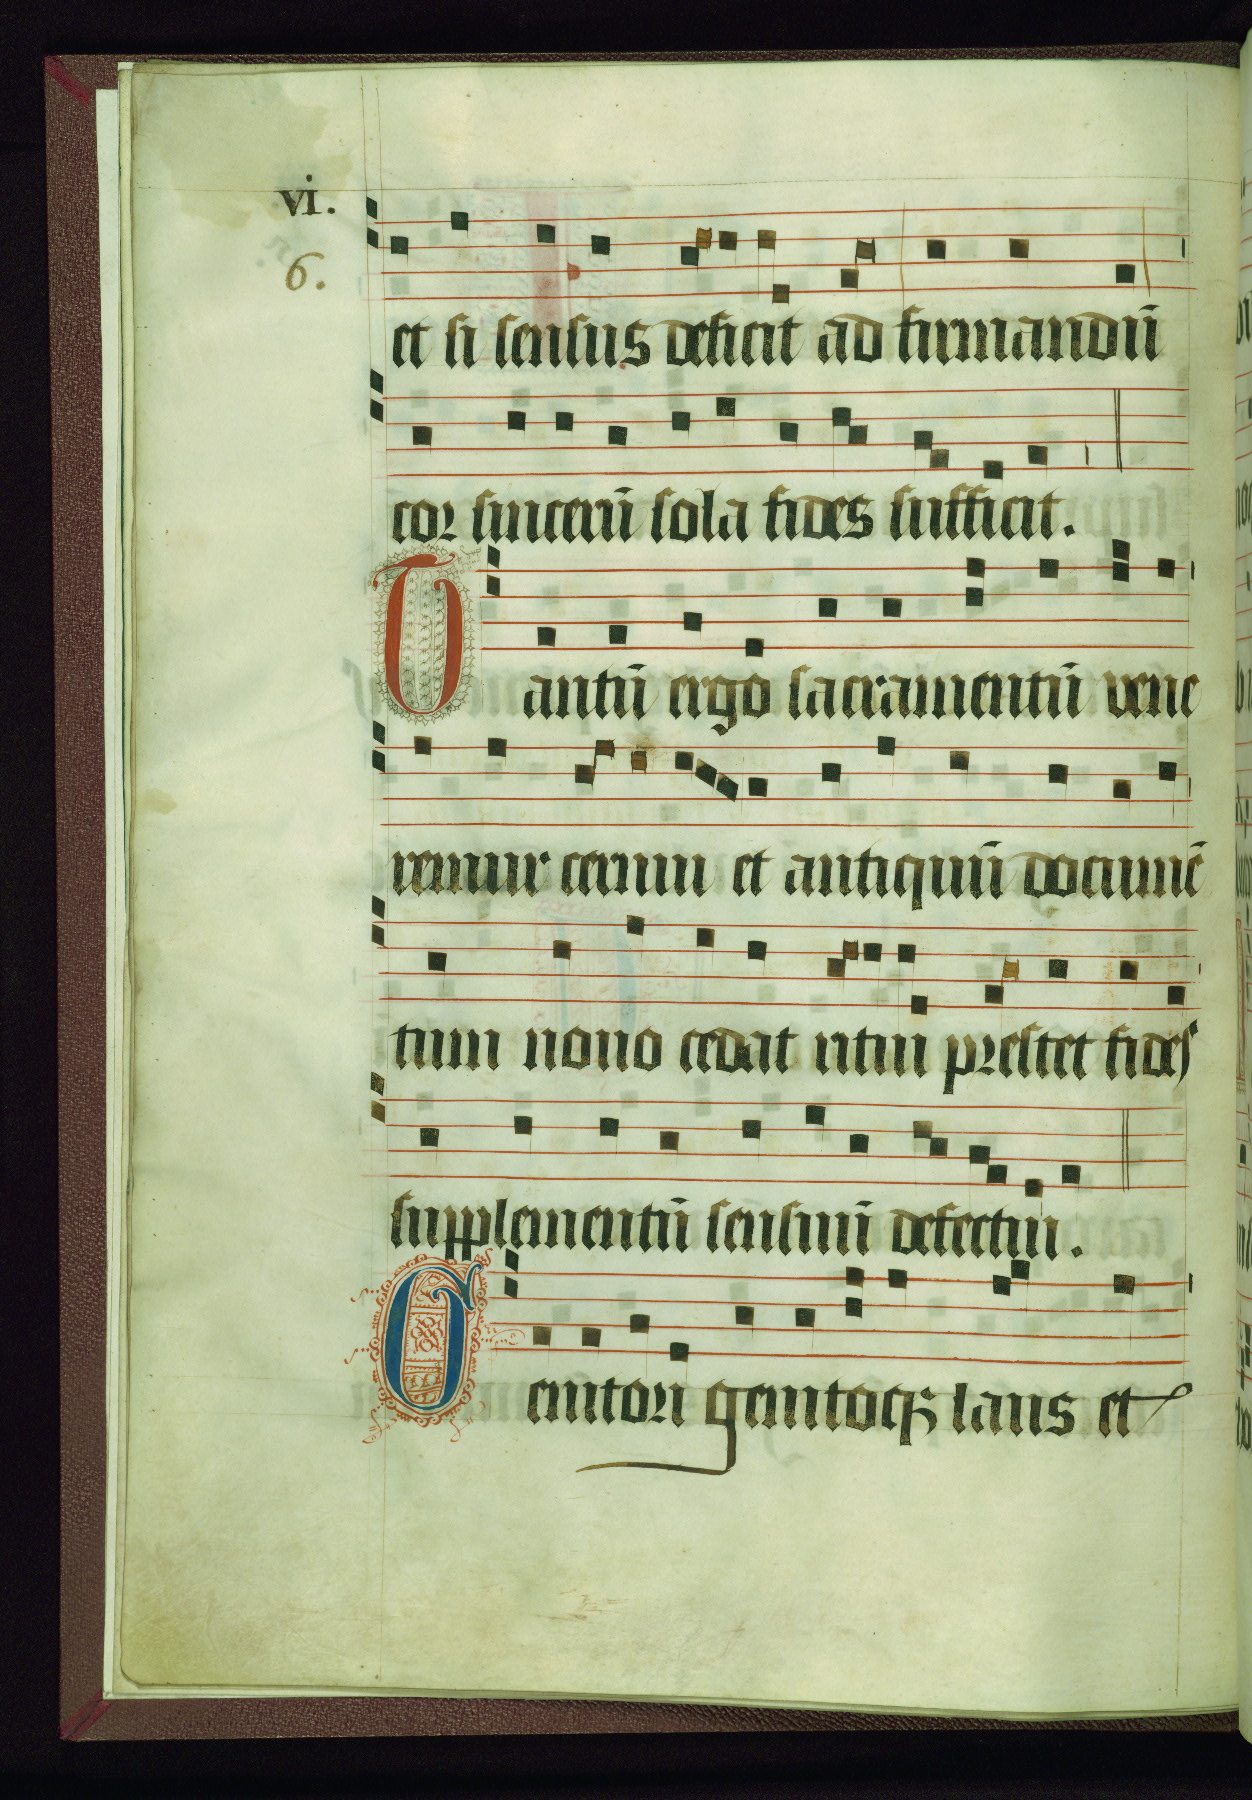 vi.
6.
et si sensus deficit ad firmandū
cor sincerū sola fides sufficit.
Tantū ergo sacramentū vene
remur cernui et antiquū documē
tum novo cedat ritui prestet fides
supplementū sensuū defectui.
Genitori genitoqꝫ laus et